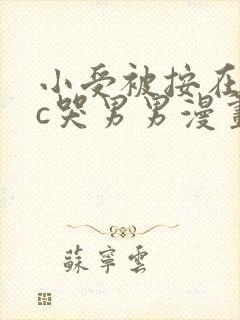 小受被按在
c哭男男漫畫
蘇寧雲